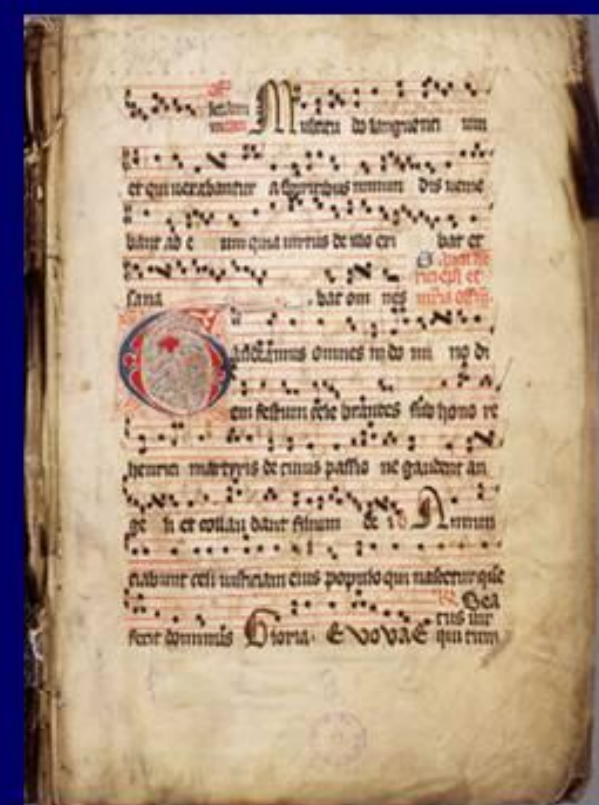 Multitu do languenti um
et qui uexabantur a spiritibus inmun dis uenie
bant ad e um quia uirtus de illo exi bat et
sana bat om nes
Gaudeamus omnes in do mi no di
em festum cele brantes sub hono re
henrici martyris de cuius passio ne gaudent an
ge li et collau dant filium de i Annun
ciabunt celi iusticiam eius populo qui nascetur que
Bea
tus uir
fecit dominus Gloria EVOVAE qui tim